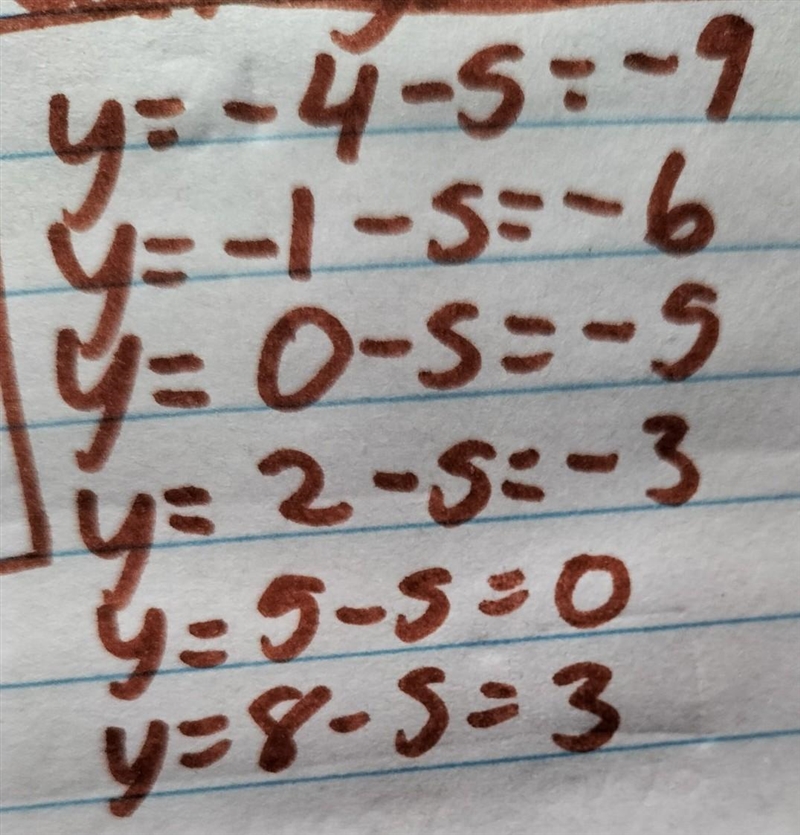 y= -4-5=-9
y= -1-5=-6
y= 0-5=-5
y= 2-5=-3
y= 5-5=0
y=8-5=3